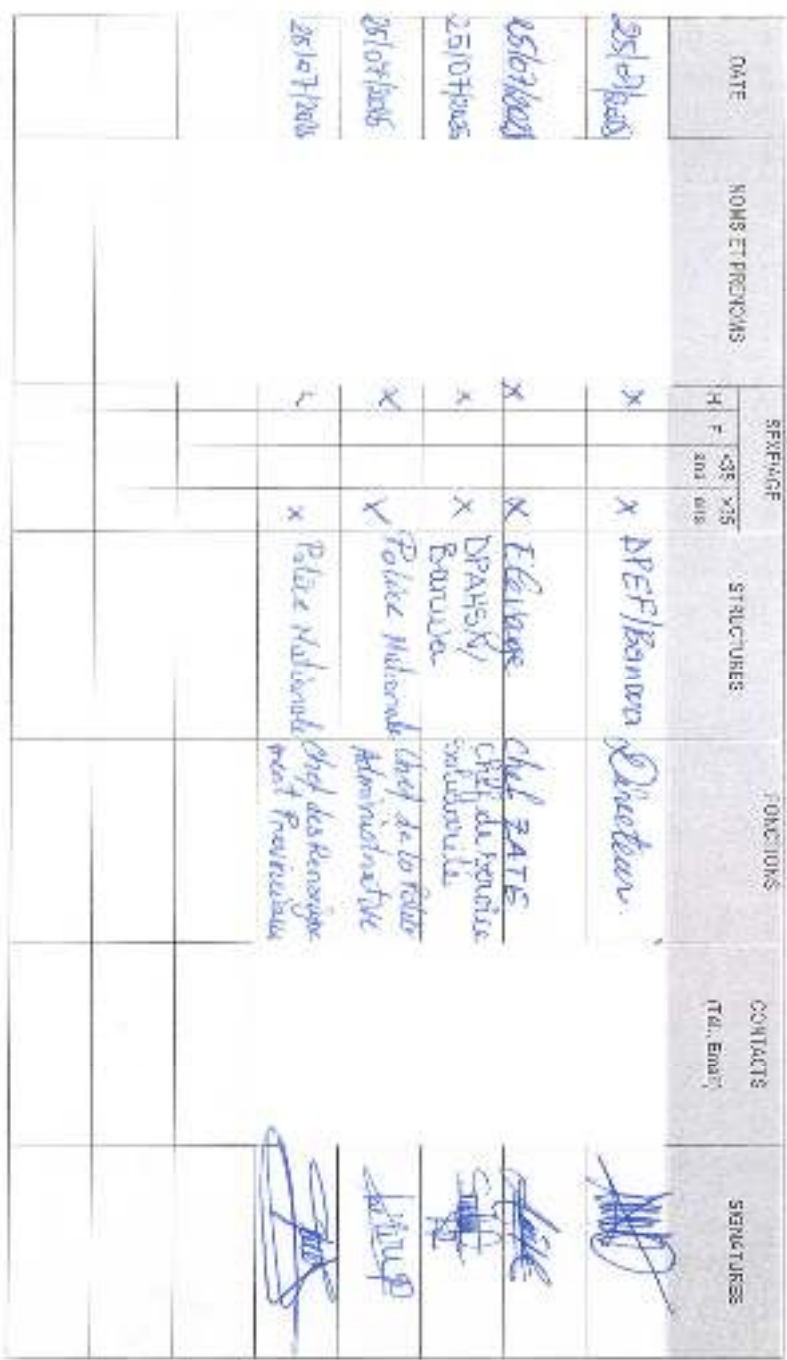 DATE NOMS ET PRENOMS SEXE/AGE STRUCTURES FONCTIONS CONTACTS (Tél., Email) SIGNATURES
H F <35 ans >35 ans
25/07/2025 X X DPEF/Banwa Directeur
25/07/2025 X X Elevage Chef ZATE
25/07/2025 X X DPAHSN/ Chef de service
Banwa
25/07/2025 X X Police Nationale Chef de la Police
Administrative
25/07/2025 X Police Nationale Chef des Renseigne
ment Provinciaux